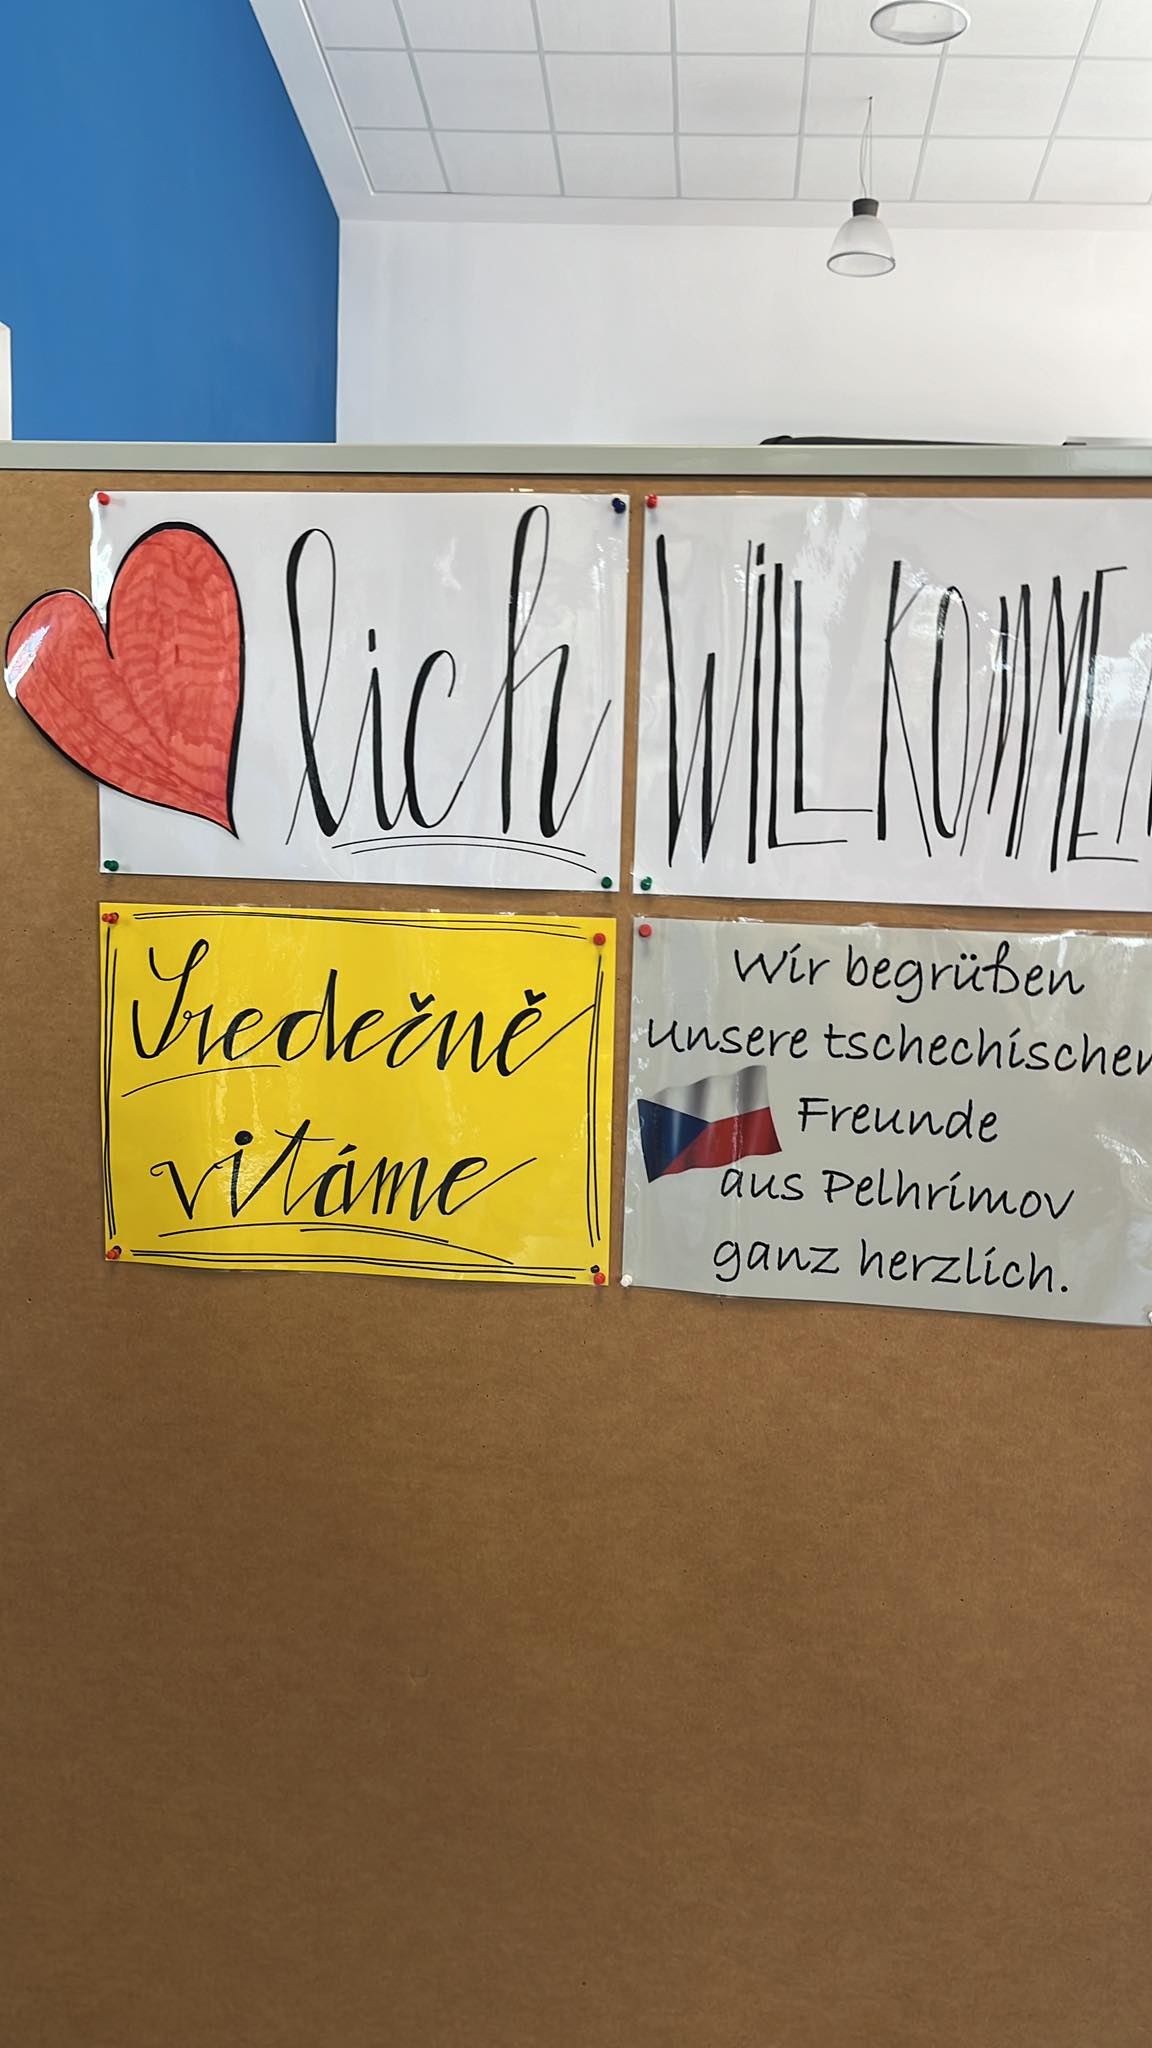 lich
WiLLKOMMEN
Srdečně
vitáme
Wir begrüßen
unsere tschechischen
Freunde
aus Pelhrimov
ganz herzlich.